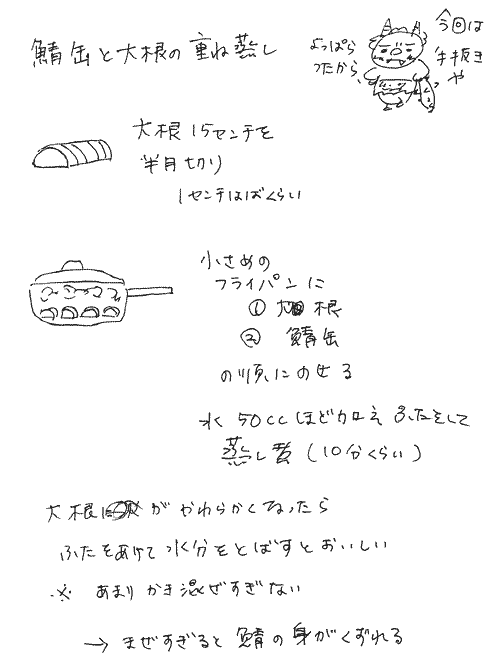 鯖缶と大根の重ね蒸し
よっぱら
ったから、
今回は
手抜き
や
大根15センチを
半月切り
1センチはばくらい
小さめの
フライパンに
① 大根
② 鯖缶
の順にのせる
水50ccほど加え ふたをして
蒸し煮(10分くらい)
大根がやわらかくなったら
ふたをあけて水分をとばすとおいしい
※ あまりかき混ぜすぎない
→ まぜすぎると鯖の身がくずれる